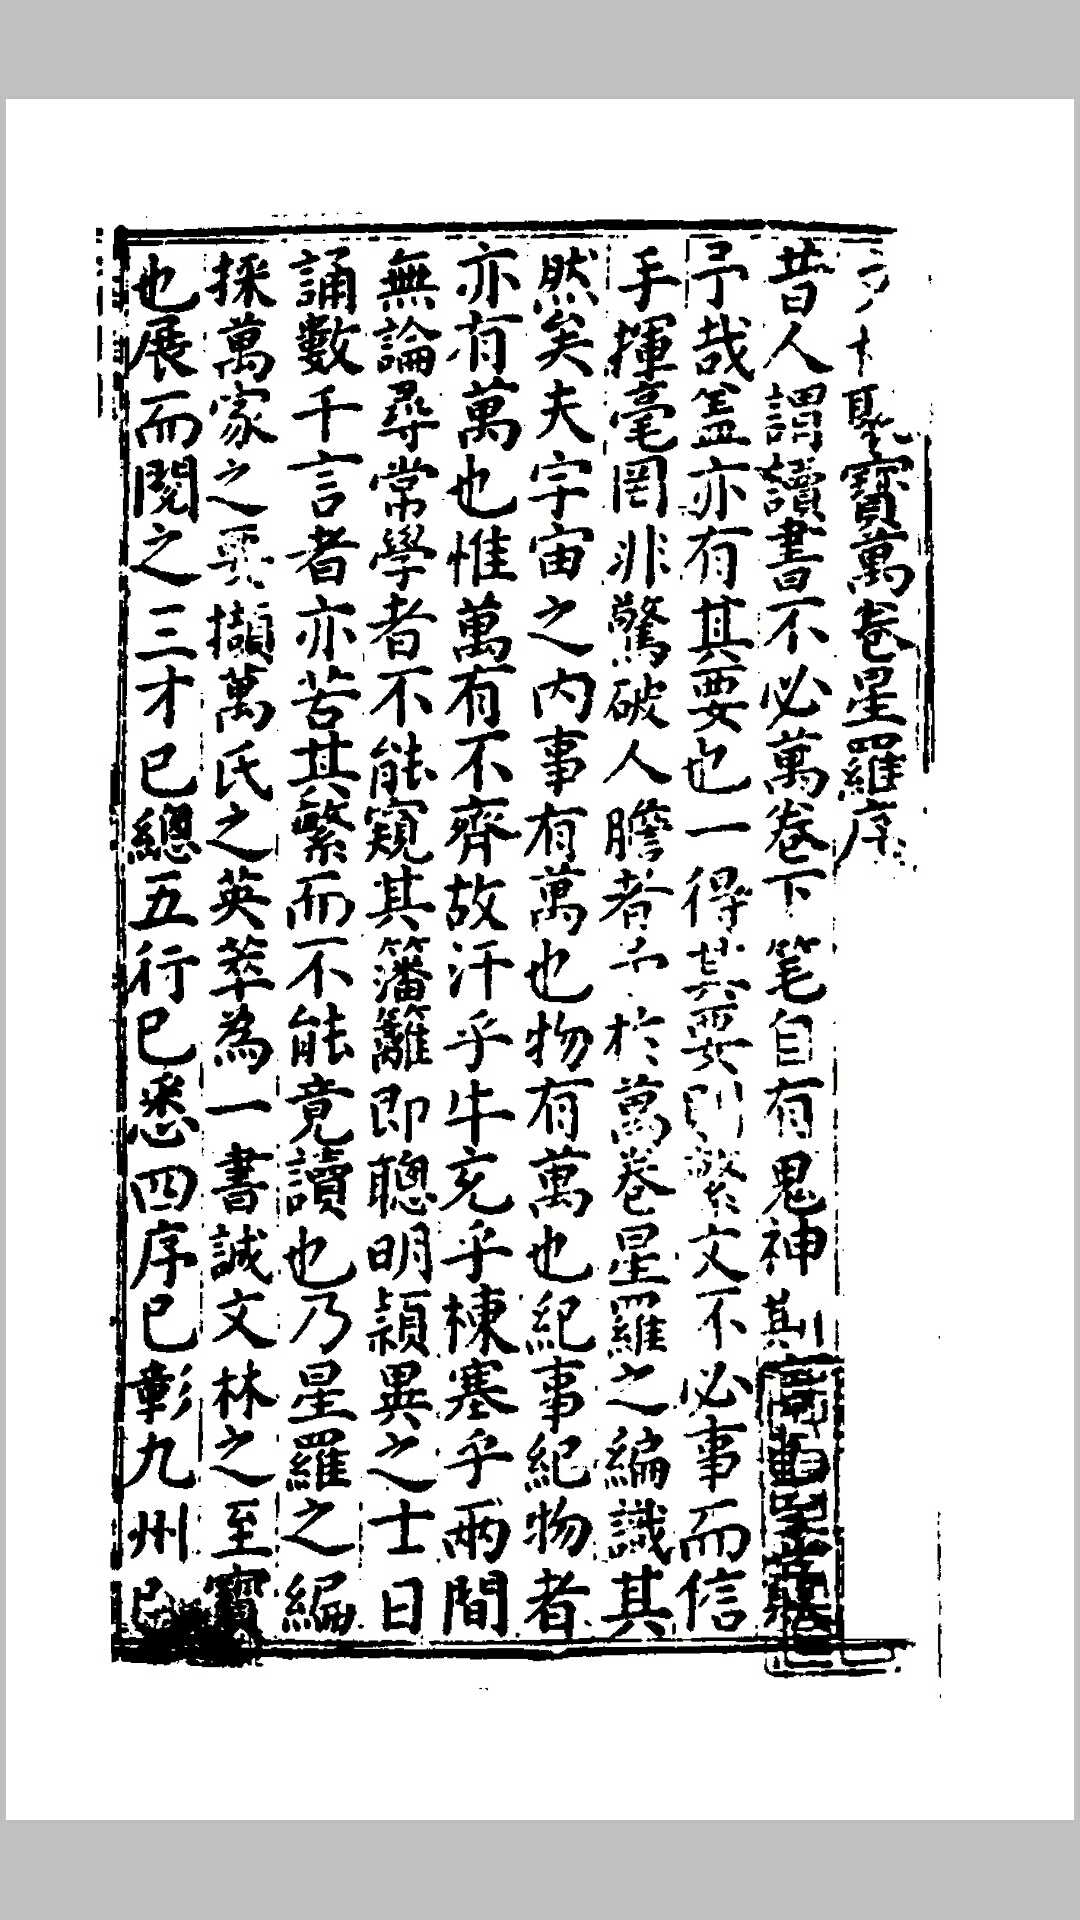 林聚寶萬卷星羅序
昔人謂讀書不必萬卷下笔自有鬼神
予哉盖亦有其要也一得其要則繁文不必事而信
手揮毫罔非驚破人膽者予於萬卷星羅之編識其
然矣夫宇宙之內事有萬也物有萬也紀事紀物者
亦有萬也惟萬有不齊故汗乎牛充乎棟塞乎兩間
無論尋常學者不能窺其籓籬即聰明穎異之士日
誦數千言者亦苦其繁而不能竟讀也乃星羅之編
採萬家之要擷萬氏之英萃為一書誠文林之至寶
也展而閱之三才已總五行已悉四序已彰九州已